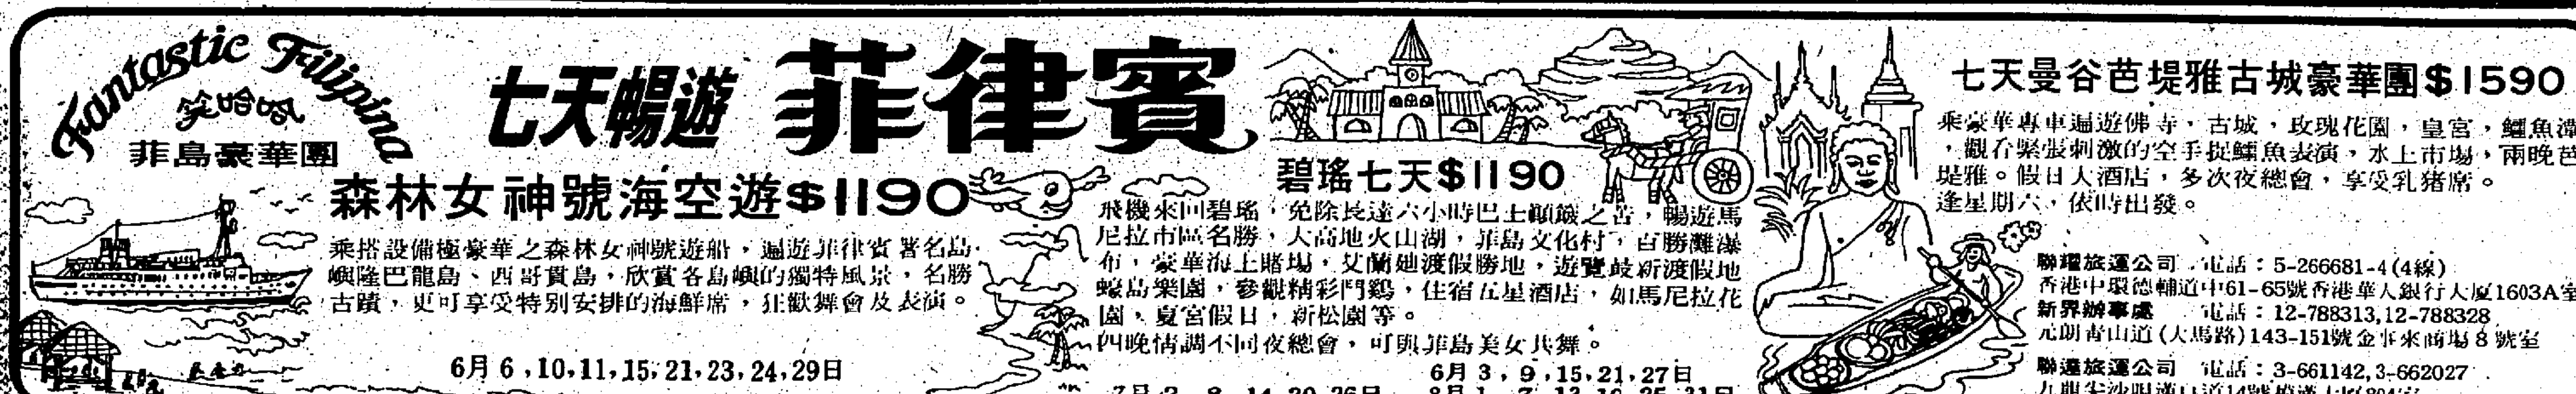 Fantastic Filipina
笑哈哈
菲島豪華團
七天暢遊 菲律賓
森林女神號海空遊$1190
乘搭設備極豪華之森林女神號遊船，遍遊菲律賓著名島
嶼隆巴龍島、西哥賓島，欣賞各島嶼的獨特風景，名勝
古蹟，更可享受特别安排的海鮮席，狂歡舞會及表演。
6月 6，10，11，15，21，23，24，29日
碧瑤七天$1190
飛機來回碧瑤，免除長達六小時巴士顛簸之苦，暢遊馬
尼拉市區名勝，大高地火山湖，菲島文化村，百勝灘瀑
布，豪華海上賭場，艾蘭廸渡假勝地，遊覽最新渡假地
蠔島樂園，參觀精彩鬥鷄，住宿五星酒店，如馬尼拉花
園，夏宮假日，新松園等。
四晚情調不同夜總會，可與菲島美女共舞。
6月 3，9，15，21，27日
七天曼谷芭堤雅古城豪華團$1590
乘豪華專車遍遊佛寺，古城，玫瑰花園，皇宮，鱷魚潭
，觀看緊張刺激的空手捉鱷魚表演，水上市場，兩晚芭
堤雅。假日大酒店，多次夜總會，享受乳豬席。
逢星期六，依時出發。
聯耀旅運公司 電話：5-266681-4(4線)
香港中環德輔道中61-65號香港華人銀行大廈1603A室
新界辦事處 電話：12-788313,12-788328
元朗青山道(大馬路)143-151號金事來商場8號室
聯達旅運公司 電話：3-661142,3-662027